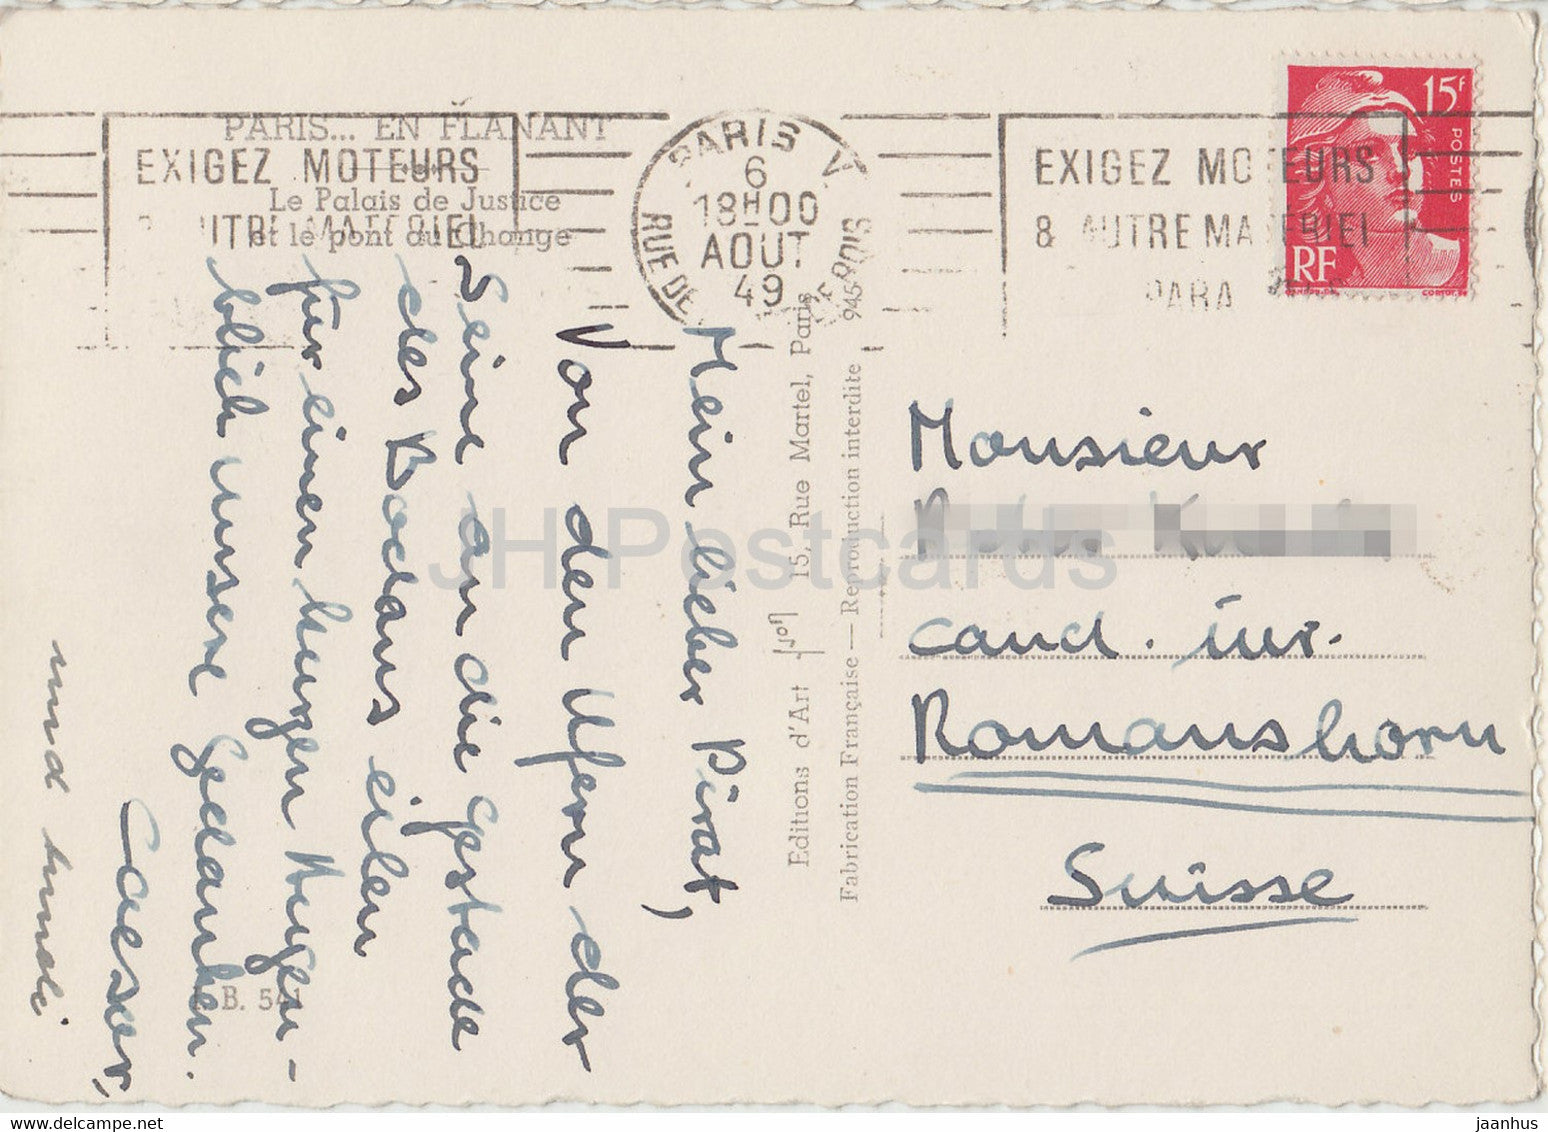 PARIS... EN FLANANT
Le Palais de Justice
et le pont au Change
EXIGEZ MOTEURS
& AUTRE MATERIEL
PARIS V
6
18H00
AOUT
49
RUE DE
EXIGEZ MOTEURS
& AUTRE MATERIEL
PARA
15F
POSTES
RF
Mein lieber Pirat,
Von den Ufern der
Seine an die Gestade
des Bodans eilen
für einen kurzen Augen-
blick unsere Gedanken.
Caesar,
und
B. 541
Editions d'Art
15, Rue Martel, Paris
Fabrication Française — Reproduction interdite
945
Monsieur
cand. iur.
Romanshorn
Suisse
JH Postcards
jaanhus